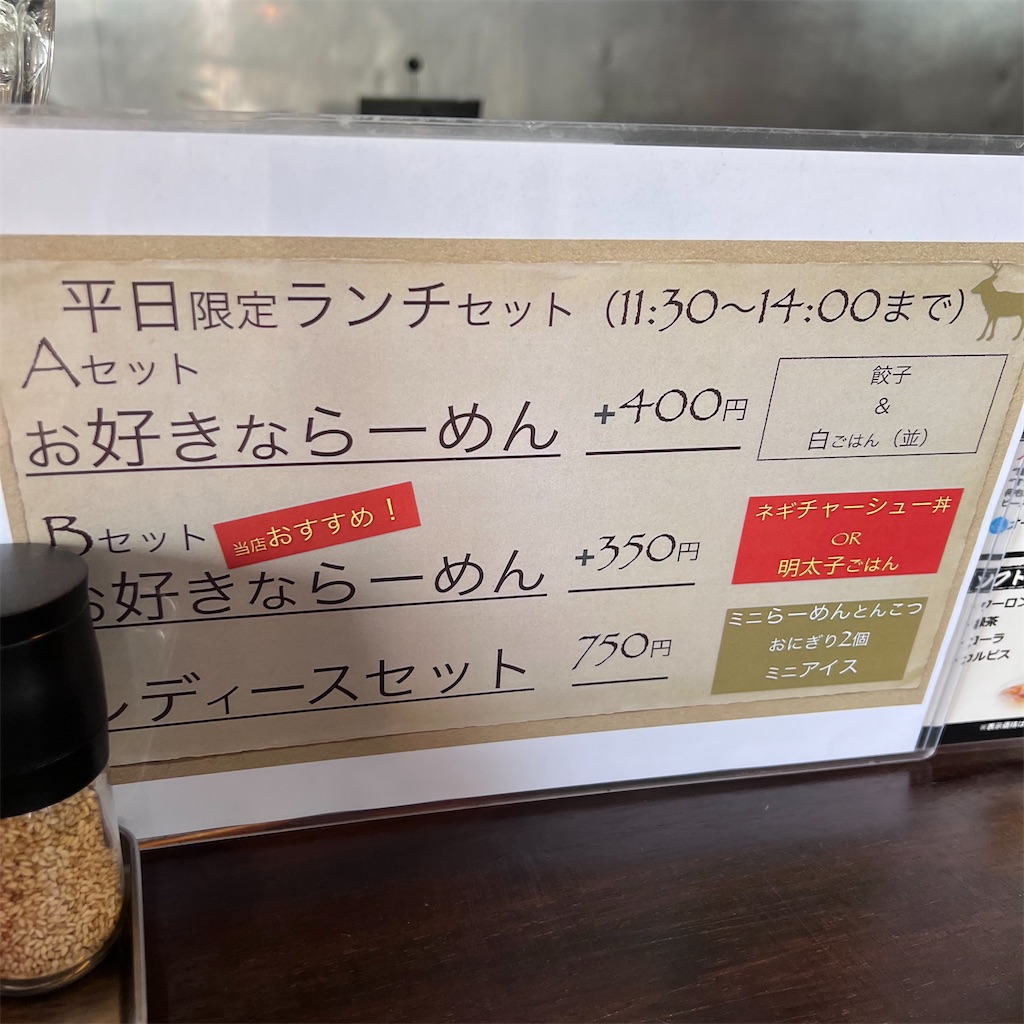 平日限定ランチセット (11:30〜14:00まで)
Aセット
お好きならーめん +400円
餃子
&
白ごはん (並)
Bセット 当店おすすめ！
お好きならーめん +350円
ネギチャーシュー丼
OR
明太子ごはん
レディースセット 750円
ミニらーめんとんこつ
おにぎり2個
ミニアイス
コーラ
カルピス